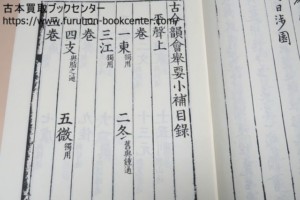 古本買取ブックセンター
https://www.furuhon-bookcenter.com/
日涉園
古今韻會舉要小補目錄
平聲上
卷
一東獨用 二冬舊與鍾通
三江獨用
卷
四支與脂之通 五微獨用
卷